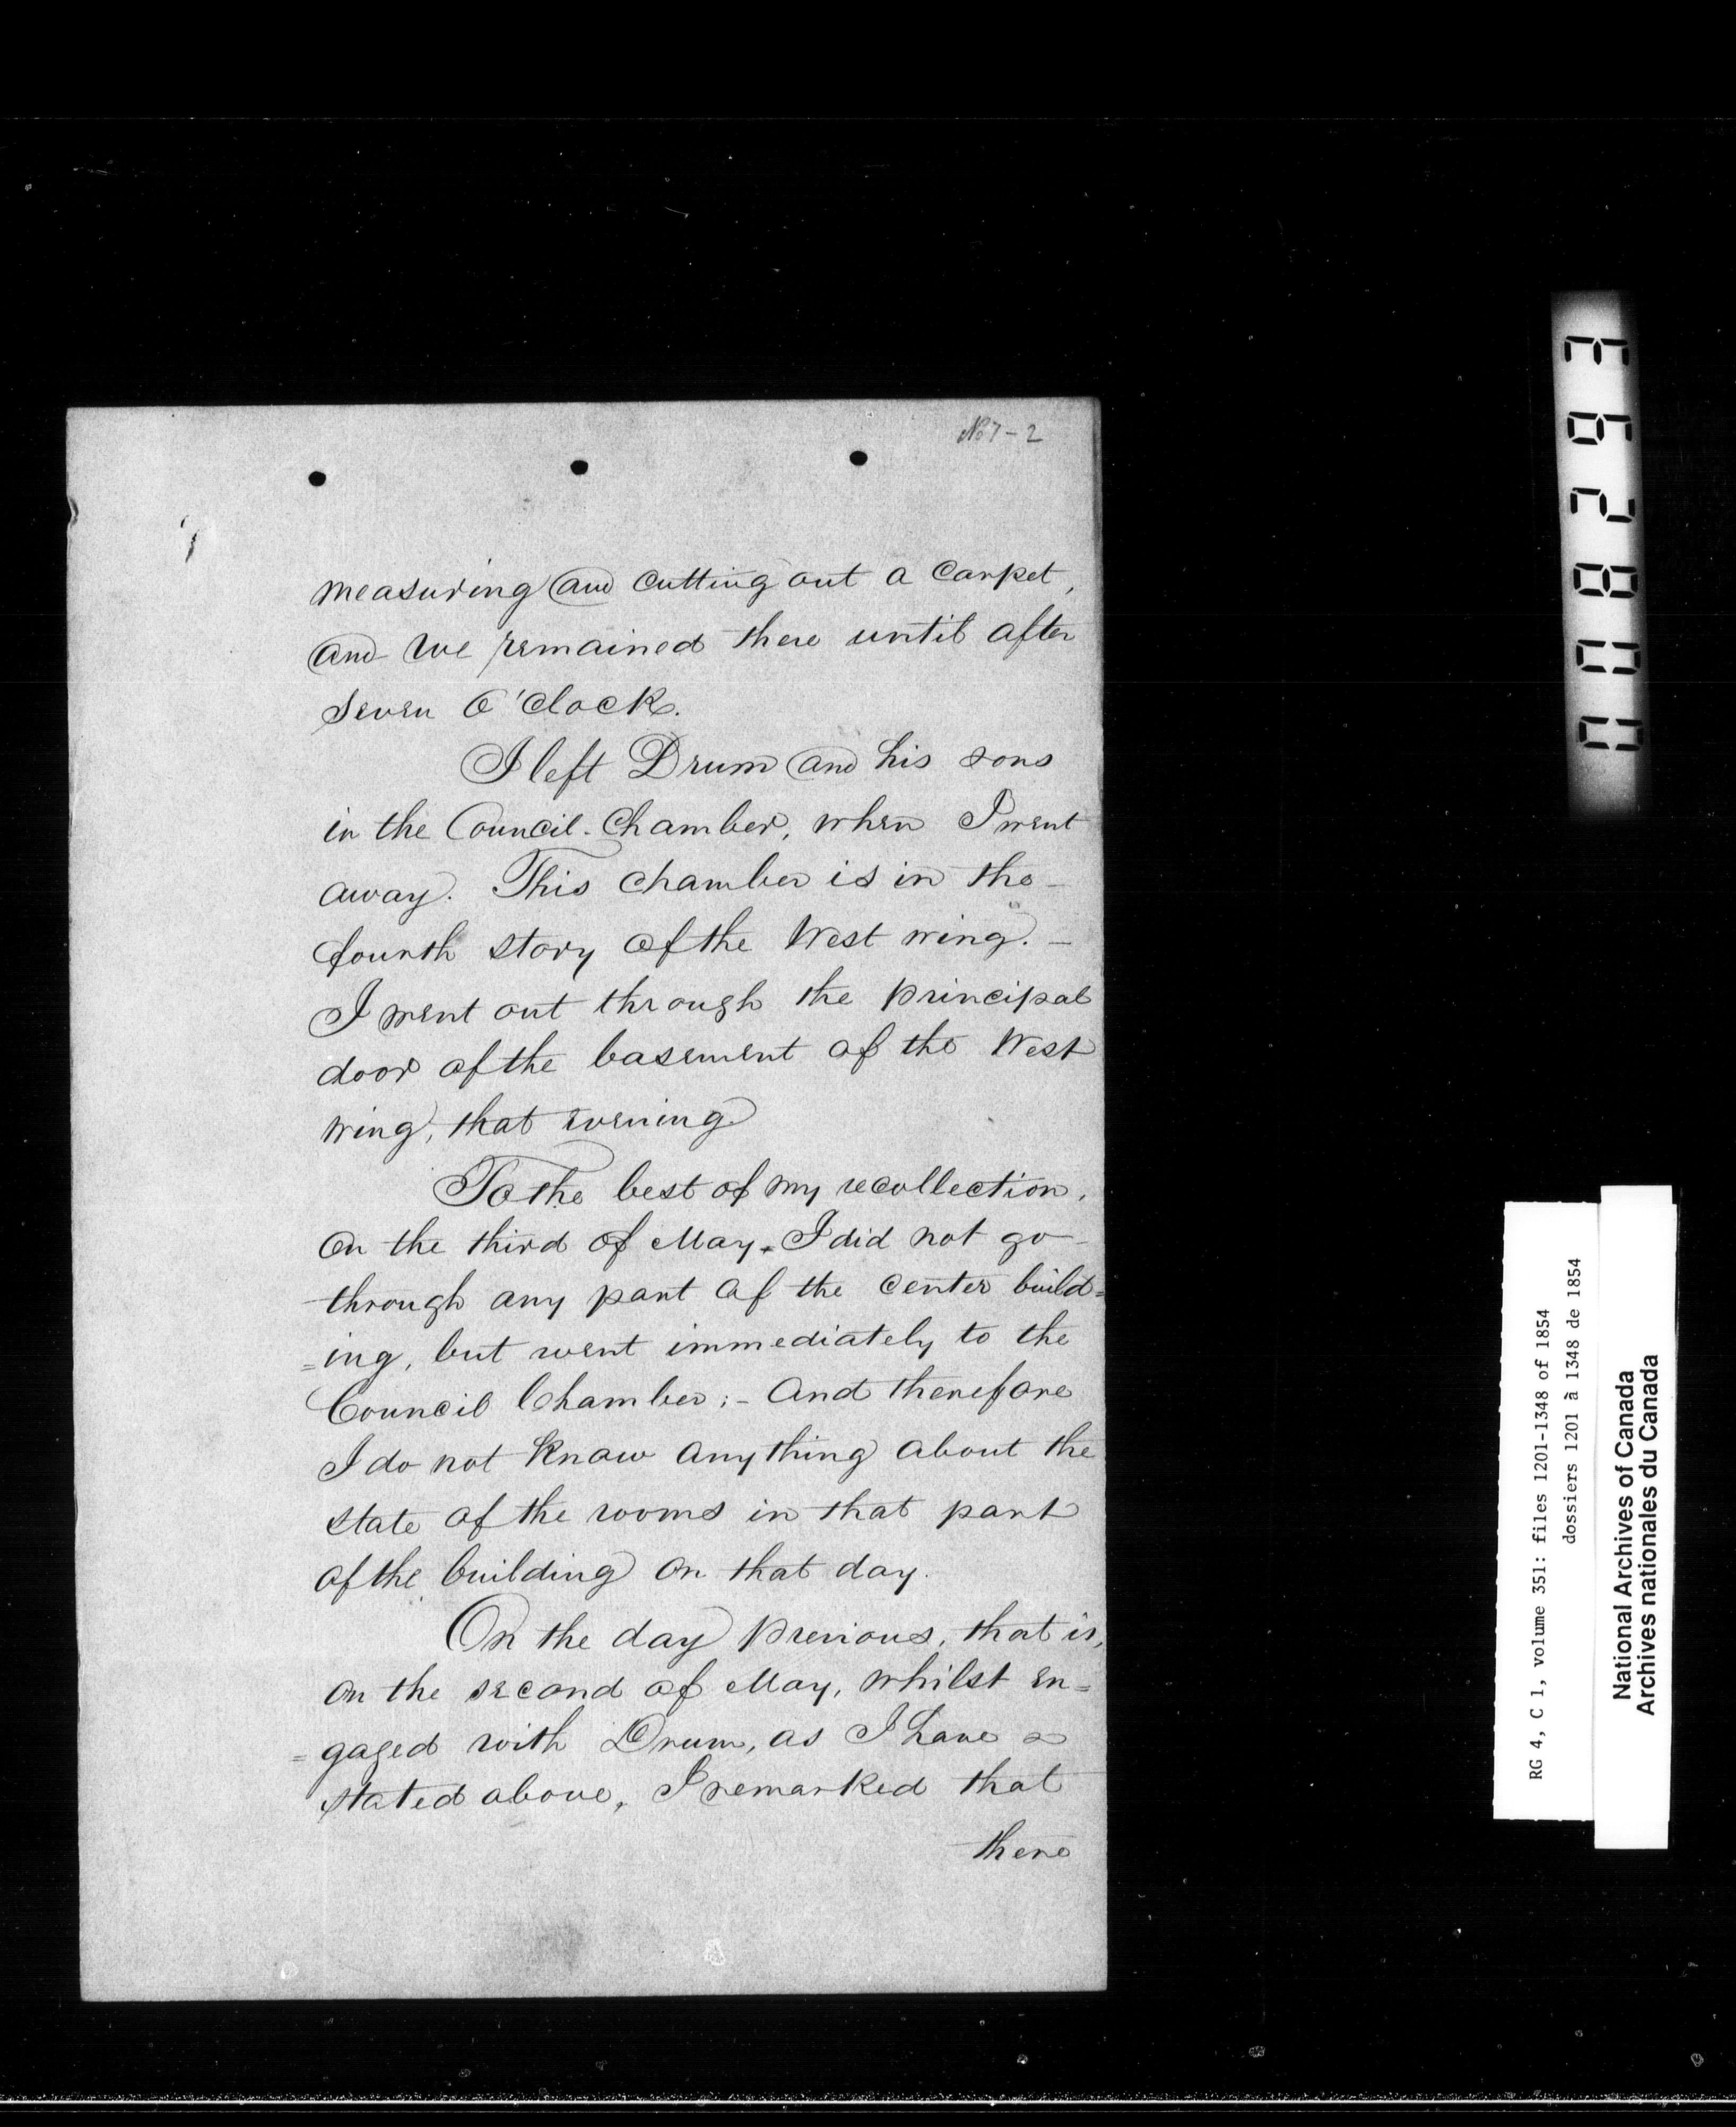 No 7 - 2
measuring and cutting out a carpet,
and we remained there until after
seven O'Clock.
I left Drum and his sons
in the Council-Chamber, when I went
away. This chamber is in the -
fourth story of the West wing. -
I went out through the principal
door of the basement of the West
wing, that evening
To the best of my recollection,
on the third of May, I did not go -
through any part of the center build=
=ing, but went immediately to the
Council Chamber; - And therefore
I do not know anything about the
state of the rooms in that part
of the building on that day.
On the day previous, that is,
on the second of May, whilst en=
=gaged with Drum, as I have
stated above, I remarked that
there
RG 4, C 1, volume 351: files 1201-1348 of 1854
dossiers 1201 à 1348 de 1854
National Archives of Canada
Archives nationales du Canada